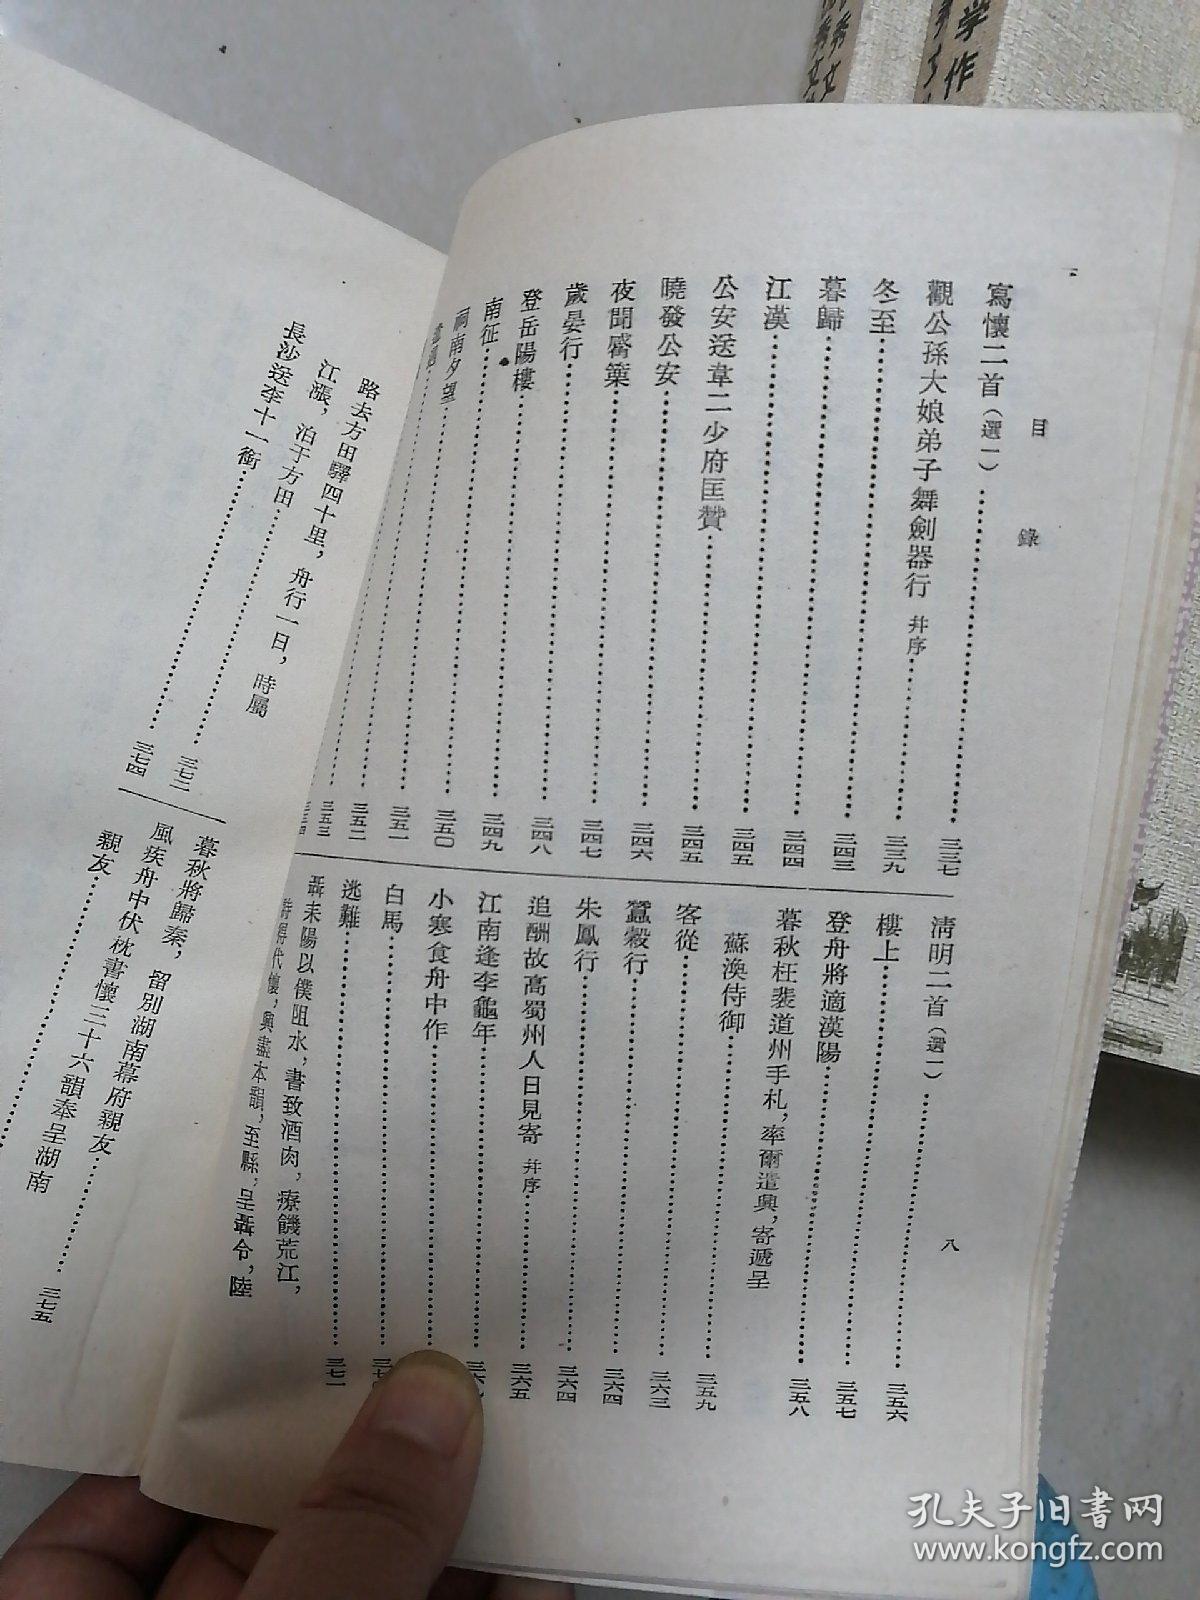 目　錄
八
寫懷二首（選一）……三三七
觀公孫大娘弟子舞劍器行　幷序……三三九
冬至……三四三
暮歸……三四四
江漢……三四五
公安送韋二少府匡贊……三四五
曉發公安……三四六
夜聞觱篥……三四七
歲晏行……三四八
登岳陽樓……三四九
南征……三五〇
祠南夕望……三五一
三五二
三五三
清明二首（選一）……三五六
樓上……三五七
登舟將適漢陽……三五八
暮秋枉裴道州手札，率爾遣興，寄遞呈
蘇渙侍御……三五九
客從……三六三
蠶穀行……三六四
朱鳳行……三六四
追酬故高蜀州人日見寄　幷序……三六五
江南逢李龜年
小寒食舟中作
白馬
逃難……三七一
聶耒陽以僕阻水，書致酒肉，療饑荒江，
詩得代懷，興盡本韻，至縣，呈聶令，陸
路去方田驛四十里，舟行一日，時屬
江漲，泊于方田……三七二
長沙送李十一銜……三七四
暮秋將歸秦，留別湖南幕府親友……三七五
風疾舟中伏枕書懷三十六韻奉呈湖南
親友
学作
孔夫子旧书网
www.kongfz.com